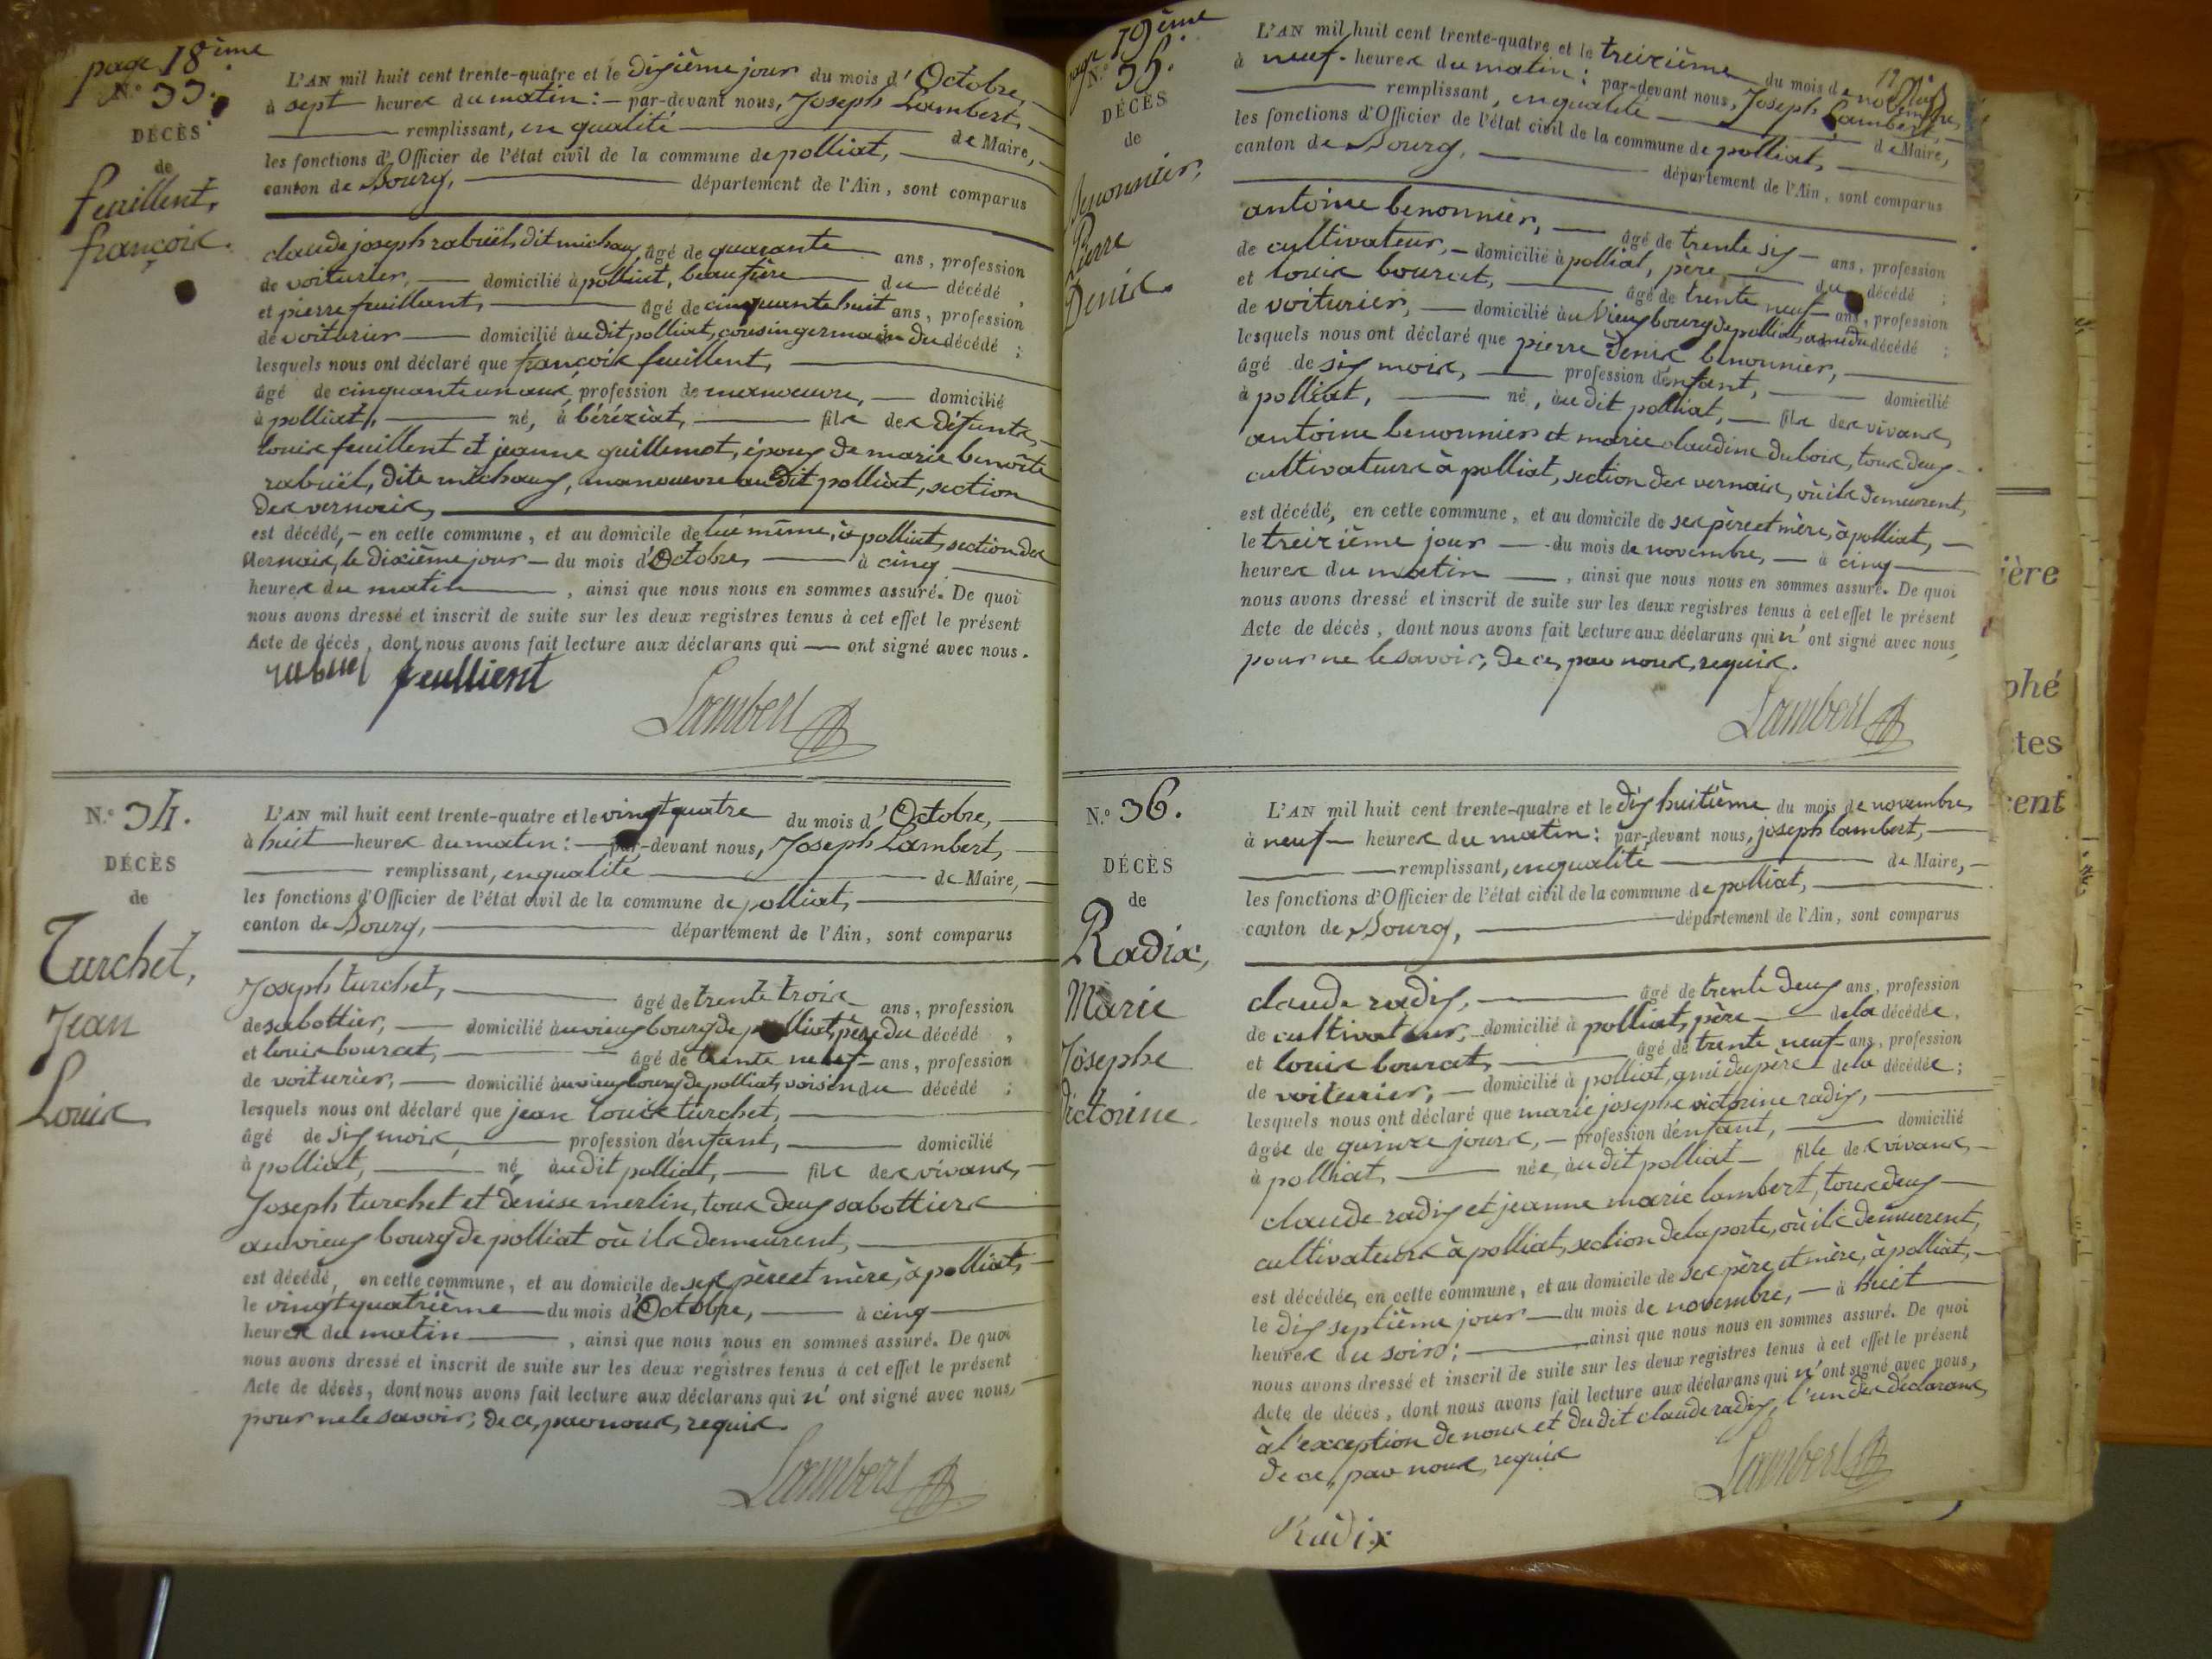 page 18ème
N.° 33.
DÉCÈS
de
feuillent,
françois.
L'AN mil huit cent trente-quatre et le dixième jour du mois d'Octobre,
à sept heures du matin : par-devant nous, Joseph Lambert,
remplissant, en qualité de Maire,
les fonctions d'Officier de l'état civil de la commune de polliat,
canton de Bourg, département de l'Ain, sont comparus
claude joseph rabuël, dit michaux, âgé de quarante ans, profession
de voiturier, domicilié à polliat, beaufrère du décédé,
et pierre feuillant, âgé de cinquante huit ans, profession
de voiturier domicilié àu dit polliat, cousin germain du décédé ;
lesquels nous ont déclaré que françois feuillent,
âgé de cinquante un ans, profession de manoeuvre, domicilié
à polliat, né, à béréziat, fils des défunts,
louis feuillent et jeanne guillemot, époux de marie benoîte
rabuël, dite michaux, manoeuvre au dit polliat, section
des vernais,
est décédé, en cette commune, et au domicile de lui même, à polliat, section des
vernais, le dixième jour du mois d'Octobre, à cinq
heures du matin, ainsi que nous nous en sommes assuré. De quoi
nous avons dressé et inscrit de suite sur les deux registres tenus à cet effet le présent
Acte de décès, dont nous avons fait lecture aux déclarans qui ont signé avec nous.
rabuel feullient
Lambert
N.° 34.
DÉCÈS
de
Turchet,
Jean
Louis
L'AN mil huit cent trente-quatre et le vingt quatre du mois d'Octobre,
à huit heures du matin : par-devant nous, Joseph Lambert,
remplissant, en qualité de Maire,
les fonctions d'Officier de l'état civil de la commune de polliat,
canton de Bourg, département de l'Ain, sont comparus
Joseph turchet, âgé de trente trois ans, profession
de sabottier, domicilié àu vieux bourg de polliat, père du décédé,
et louis bourcet, âgé de trente neuf ans, profession
de voiturier, domicilié àu vieux bourg de polliat, voisin du décédé ;
lesquels nous ont déclaré que jean louis turchet,
âgé de six mois, profession d'enfant, domicilié
à polliat, né, àu dit polliat, fils des vivans,
Joseph turchet et denise merlin, tous deux sabottiers
au vieux bourg de polliat où ils demeurent,
est décédé, en cette commune, et au domicile de ses père et mère, à polliat,
le vingt quatrième du mois d'Octobre, à cinq
heures du matin, ainsi que nous nous en sommes assuré. De quoi
nous avons dressé et inscrit de suite sur les deux registres tenus à cet effet le présent
Acte de décès, dont nous avons fait lecture aux déclarans qui n'ont signé avec nous,
pour ne le savoir, de ce, par nous, requis.
Lambert
page 19ème
N.° 35.
DÉCÈS
de
Benonnier,
Pierre
Denis.
L'AN mil huit cent trente-quatre et le treizième du mois de novembre,
à neuf heures du matin : par-devant nous, Joseph Lambert,
remplissant, en qualité de Maire,
les fonctions d'Officier de l'état civil de la commune de polliat,
canton de Bourg, département de l'Ain, sont comparus
antoine benonnier, âgé de trente six ans, profession
de cultivateur, domicilié à polliat, père du décédé ;
et louis bourcet, âgé de trente neuf ans, profession
de voiturier, domicilié àu vieux bourg de polliat, ami du décédé :
lesquels nous ont déclaré que pierre denis benonnier,
âgé de six mois, profession d'enfant, domicilié
à polliat, né, àu dit polliat, fils des vivans,
antoine benonnier et marie claudine dubois, tous deux
cultivateurs à polliat, section des vernais, où ils demeurent,
est décédé, en cette commune, et au domicile de ses père et mère, à polliat,
le treizième jour du mois de novembre, à cinq
heures du matin, ainsi que nous nous en sommes assuré. De quoi
nous avons dressé et inscrit de suite sur les deux registres tenus à cet effet le présent
Acte de décès, dont nous avons fait lecture aux déclarans qui n'ont signé avec nous,
pour ne le savoir, de ce, par nous, requis.
Lambert
N.° 36.
DÉCÈS
de
Radix,
Marie
Josephe
Victorine.
L'AN mil huit cent trente-quatre et le dix huitième du mois de novembre,
à neuf heures du matin : par-devant nous, joseph lambert,
remplissant, en qualité de Maire,
les fonctions d'Officier de l'état civil de la commune de polliat,
canton de Bourg, département de l'Ain, sont comparus
claude radix, âgé de trente deux ans, profession
de cultivateur, domicilié à polliat, père de la décédée,
et louis bourcet, âgé de trente neuf ans, profession
de voiturier, domicilié à polliat, ami du père de la décédée ;
lesquels nous ont déclaré que marie josephe victorine radix,
âgée de quinze jours, profession d'enfant, domicilié
à polliat, née, àu dit polliat fille des vivans,
claude radix et jeanne marie lambert, tous deux
cultivateurs à polliat, section de la porte, où ils demeurent,
est décédée, en cette commune, et au domicile de ses père et mère, à polliat,
le dix septième jour du mois de novembre, à huit
heures du soir ; ainsi que nous nous en sommes assuré. De quoi
nous avons dressé et inscrit de suite sur les deux registres tenus à cet effet le présent
Acte de décès, dont nous avons fait lecture aux déclarans qui n'ont signé avec nous,
à l'exception de nous et du dit claude radix, l'un des déclarans,
de ce, par nous, requis
Lambert
Radix
ière
phé
tes
cent